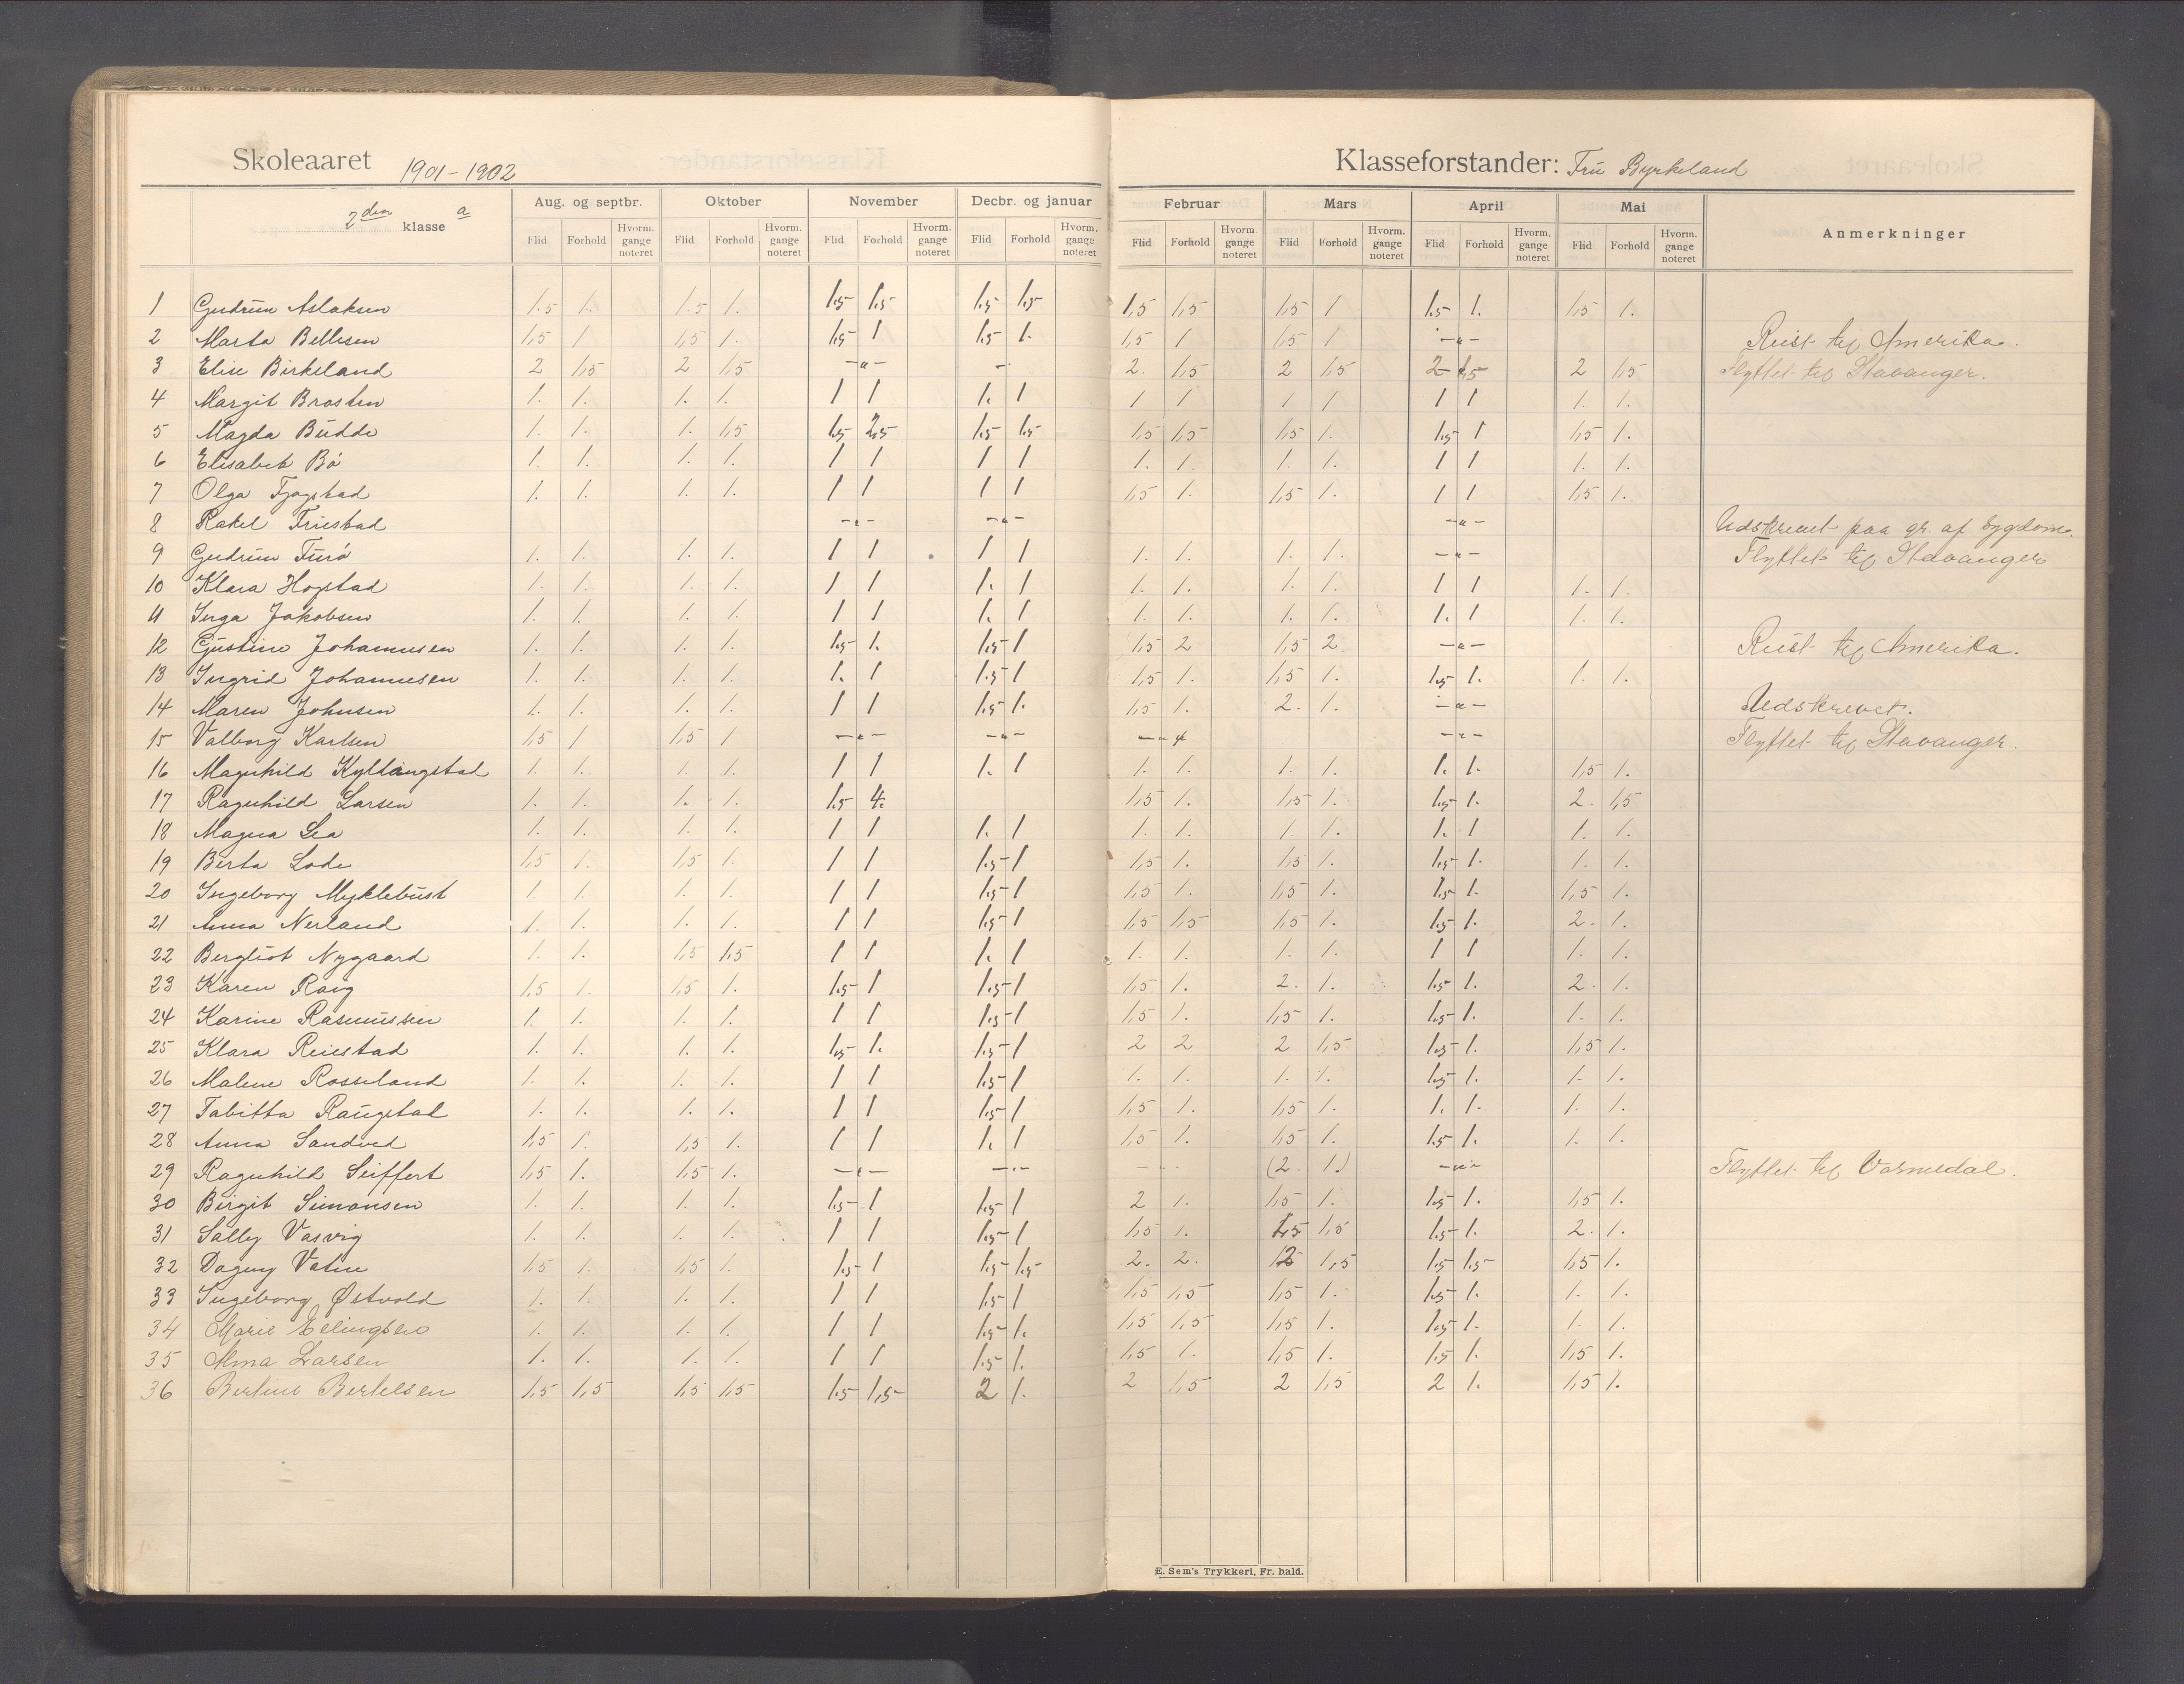 Skoleaaret 1901-1902
Klasseforstander: Fru Byrkeland
2den klasse a
Aug. og septbr. Oktober November Decbr. og januar Februar Mars April Mai Anmerkninger
Flid Forhold Hvorm. gange noteret Flid Forhold Hvorm. gange noteret Flid Forhold Hvorm. gange noteret Flid Forhold Hvorm. gange noteret Flid Forhold Hvorm. gange noteret Flid Forhold Hvorm. gange noteret Flid Forhold Hvorm. gange noteret Flid Forhold Hvorm. gange noteret
1 Gudrun Aslaksen 1.5 1. 1.5 1. 1.5 1.5 1.5 1.5 1,5 1,5 1,5 1 1.5 1. 1,5 1.
2 Marta Bellesen 1,5 1 1,5 1. 1,5 1 1.5 1. 1,5 1 1,5 1 -"- Reist til Amerika.
3 Elise Birkeland 2 1,5 2 1,5 -"- - 2. 1,5 2 1,5 2 1,5 2 1,5 Flyttet til Stavanger.
4 Margit Brosten 1. 1. 1. 1. 1 1 1. 1 1 1 1 1 1 1 1. 1.
5 Magda Budde 1. 1. 1. 1,5 1.5 2.5 1.5 1.5 1,5 1,5 1,5 1. 1.5 1 1,5 1.
6 Elisabet Bø 1. 1. 1. 1. 1 1 1 1 1. 1. 1. 1. 1 1 1. 1.
7 Olga 1. 1. 1. 1. 1 1 1 1 1,5 1. 1,5 1. 1 1 1,5 1.
8 Rakel Friestad -"- -"- -"- Udskrevet paa gr. af sygdom.
9 Gudrun Furø 1. 1. 1. 1. 1 1 1 1 1. 1. 1. 1. -"- Flyttet til Stavanger
10 Klara Hogstad 1. 1. 1. 1. 1 1 1. 1 1. 1. 1. 1. 1 1 1. 1.
11 Inga Jakobsen 1. 1. 1. 1. 1 1 1. 1 1. 1. 1. 1. 1. 1 1. 1.
12 Gustine Johannesen 1. 1. 1. 1. 1.5 1. 1.5 1 1,5 2 1,5 2 -"- Reist til Amerika.
13 Ingrid Johannesen 1. 1. 1. 1. 1. 1 1.5 1 1,5 1. 1,5 1. 1.5 1. 1. 1.
14 Maren Johnsen 1. 1. 1. 1. 1 1 1.5 1. 1,5 1. 2. 1. -"- Udskrevet.
15 Valborg Karlsen 1,5 1 1,5 1 -"- -"- -"- -"- Flyttet til Stavanger.
16 Magnhild Kyllingstad 1. 1. 1. 1. 1 1 1. 1 1. 1. 1. 1. 1. 1. 1,5 1.
17 Ragnhild Larsen 1. 1. 1. 1. 1.5 4. 1,5 1. 1,5 1. 1.5 1. 2. 1,5
18 Magna Lea 1. 1. 1. 1. 1 1 1. 1 1. 1. 1. 1. 1. 1 1. 1.
19 Berta Lode 1,5 1. 1,5 1. 1 1 1.5 1 1,5 1. 1,5 1. 1.5 1. 1. 1.
20 Ingeborg Myklebust 1. 1. 1. 1. 1 1 1.5 1 1,5 1. 1,5 1. 1.5 1. 1,5 1.
21 Anna Nerland 1. 1. 1. 1. 1 1 1.5 1 1,5 1,5 1,5 1. 1.5 1. 2. 1.
22 Bergliot Nygaard 1. 1. 1,5 1,5 1 1 1. 1 1. 1. 1. 1. 1 1 1. 1.
23 Karen Raug 1,5 1. 1,5 1. 1.5 1 1.5 1 1,5 1. 2. 1. 1.5 1. 2. 1.
24 Karine Rasmussen 1. 1. 1. 1. 1 1 1.5 1 1,5 1. 1,5 1. 1.5 1. 1. 1.
25 Klara Reiestad 1. 1. 1. 1. 1.5 1. 1.5 1 2 2 2 1,5 1.5 1. 1,5 1.
26 Malene Rosseland 1. 1. 1. 1. 1 1 1.5 1 1. 1. 1. 1. 1.5 1. 1. 1.
27 Tabitta Raugstad 1. 1. 1. 1. 1 1 1.5 1 1,5 1. 1,5 1. 1. 1. 1. 1.
28 Anna Sandved 1,5 1. 1,5 1. 1 1 1. 1 1,5 1. 1,5 1. 1.5 1. 1. 1.
29 Ragnhild Seiffert 1,5 1. 1,5 1. -"- -"- - (2. 1.) -"- Flyttet til
30 Birgit Simonsen 1. 1. 1. 1. 1.5 1 1.5 1 2 1. 1,5 1. 1.5 1. 1,5 1.
31 Sally Vasvig 1. 1. 1. 1. 1 1 1.5 1 1,5 1. 1,5 1,5 1.5 1. 2. 1.
32 Dagny Vatne 1,5 1. 1,5 1. 1.5 1 1.5 1.5 2. 2. 2 1,5 1.5 1.5 1,5 1.
33 Ingeborg Østvold 1. 1. 1. 1. 1 1 1.5 1 1,5 1,5 1,5 1. 1.5 1. 1. 1.
34 Marie 1. 1. 1. 1. 1 1 1.5 1. 1,5 1,5 1,5 1. 1.5 1. 1. 1.
35 Alma Larsen 1. 1. 1. 1. 1 1 1.5 1. 1,5 1. 1,5 1. 1.5 1. 1,5 1.
36 Bertine Bertelsen 1,5 1,5 1,5 1,5 1.5 1,5 2 1. 2 1,5 2 1,5 2 1. 1,5 1.
E. Sem's Trykkeri, Fr.hald.